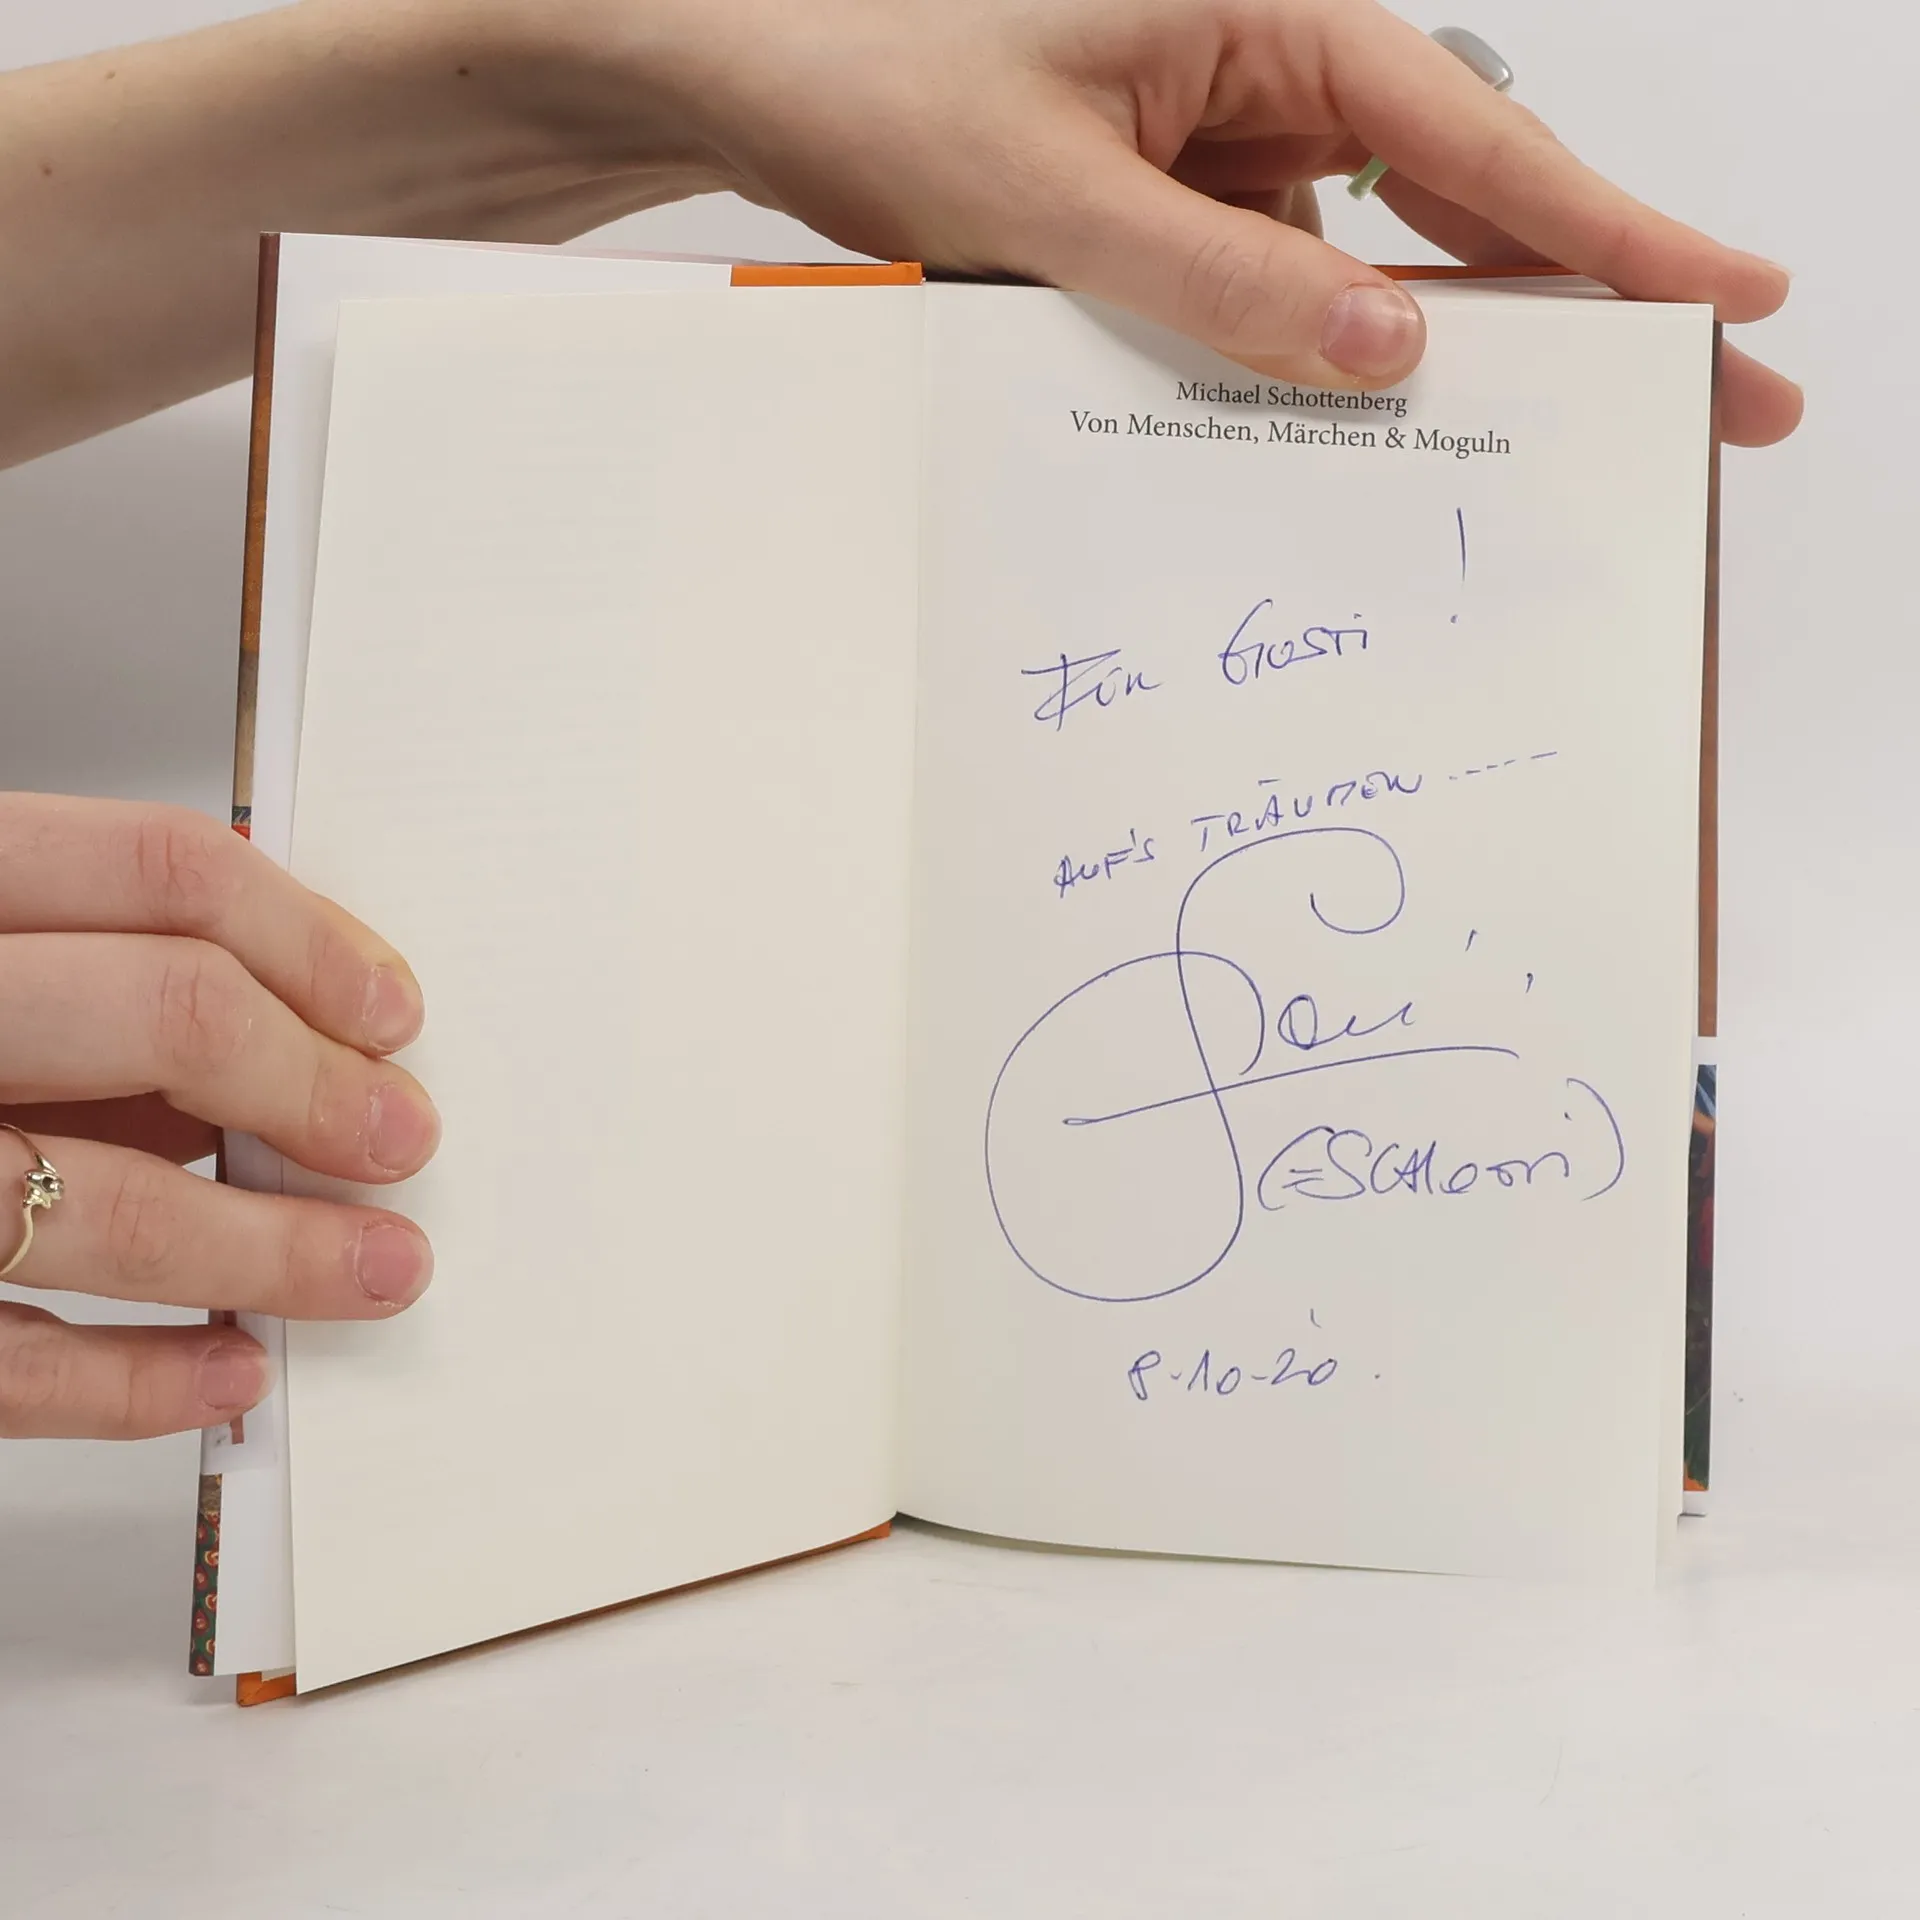 Michael Schottenberg
Von Menschen, Märchen & Moguln
Für Gusti!
AUF'S TRÄUMEN -----
(=SCHOTTI)
8-10-20.